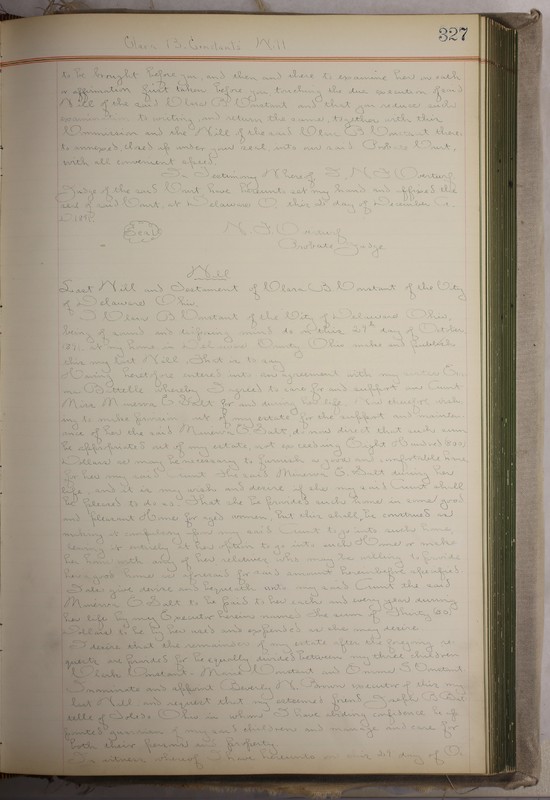 327
Clara B. Constant's Will
to be brought before you, and then and there to examine her on oath
or affirmation first taken before you touching the due execution of said
Will of the said Clara B Constant and that you reduce such
examination to writing, and return the same, together with this
Commission and the Will of the said Clara B Constant there-
to annexed, closed up under your seal, unto our said Probate Court,
with all convenient speed.
In Testimony Whereof I, N. F.
Judge of the said Court have hereunto set my hand and affixed the
seal of said Court, at Delaware O. this day of December A.
D.
Seal
N. F.
Probate Judge
Will
Last Will and Testament of Clara B Constant of the City
of Delaware Ohio.
I Clara B Constant of the City of Delaware Ohio,
being of sound and disposing mind do this day of October
at my home in Delaware County Ohio make and publish
this my last Will. That is to say
Having heretofore entered into an agreement with my sister
whereby I agreed to care for and support our Aunt
Miss Minerva E. Galt for and during her life. I do therefore wish-
ing to make provision out of my estate for the support and mainten-
ance of her the said Minerva E Galt, do now direct that such sum
be appropriated out of my estate, not exceeding Eight Hundred 800
Dollars as may be necessary to furnish a good and comfortable home
for her my said Aunt the said Minerva E. Galt during her
life, and it is my wish and desire if she my said Aunt shall
be pleased to do so. That she be provided such home in some good
and pleasant Home for aged women, but this shall be construed as
making it compulsory upon my said Aunt to go into such home,
leaving it entirely at her option to go into such Home or make
her home with any of her relatives who may be willing to provide
her a good home as aforesaid for said amount hereinbefore specified.
I also give devise and bequeath unto my said Aunt the said
Minerva E Galt to be paid to her each and every year during
her life by my Executor herein named the sum of Thirty (30)
Dollars to be by her used and expended as she may desire.
I desire that the remainder of my estate after the foregoing re-
quests are provided for be equally divided between my three children
Clark Constant, Constant and S. Constant
I nominate and appoint N. Brown executor of this my
last Will and request that my esteemed friend Joseph B Bat-
telle of Toledo Ohio in whom I have abiding confidence be ap-
pointed guardian of my said children and manage and care for
both their persons and property.
In witness whereof I have hereunto on this 28 day of O